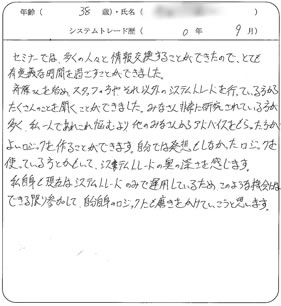 年齢( 38 歳)・氏名(
システムトレード歴( 0 年 9 月)
セミナーでは、多くの人々と情報交換することができたので、とても
有意義な時間を過ごすことができました。
斉藤さんを始め、スタッフの方やそれ以外のシステムトレードを行っている方から
たくさんのことを聞くことができました。みなさん非常に研究されている方が
多く、私一人であれこれ悩むより他のみなさんからアドバイスをもらった方が
よいロジックを作ることができます。自分では発想もしなかったロジックを
使っている方とかもいて、システムトレードの奥の深さを感じます。
私自身も現在はシステムトレードのみで運用しているため、このような機会は
できる限り参加して、自分自身のロジックにも磨きをかけていこうと思います。